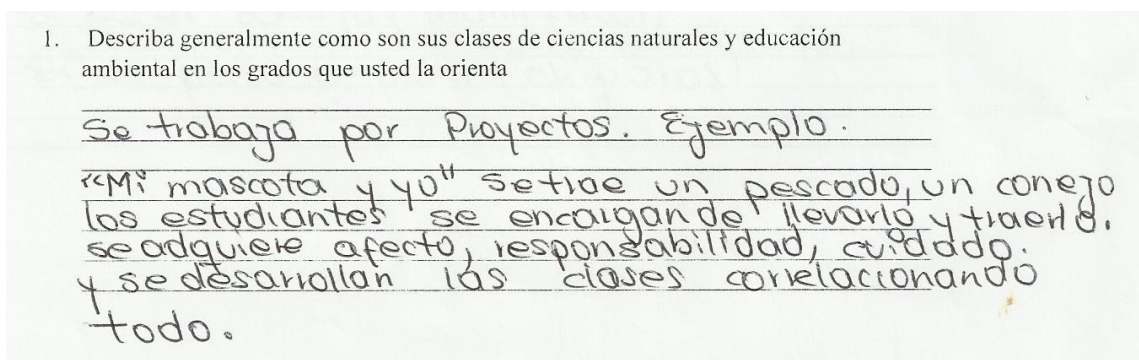 1. Describa generalmente como son sus clases de ciencias naturales y educación
ambiental en los grados que usted la orienta
Se trabaja por Proyectos. Ejemplo.
"Mi mascota y yo" se trae un pescado, un conejo
los estudiantes se encargan de llevarlo y traerlo.
se adquiere afecto, responsabilidad, cuidado.
y se desarrollan las clases correlacionando
todo.